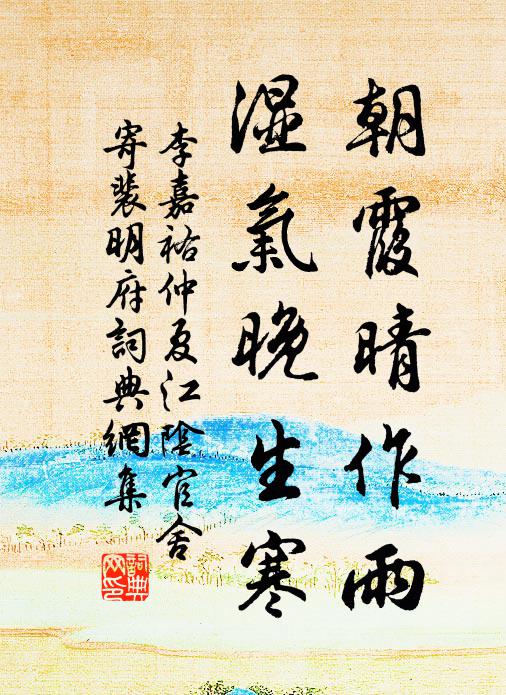 朝霞晴作雨
湿氣晚生寒
李嘉祐仲夏江陰官舍
寄裴明府詞典網集
詞典
网印